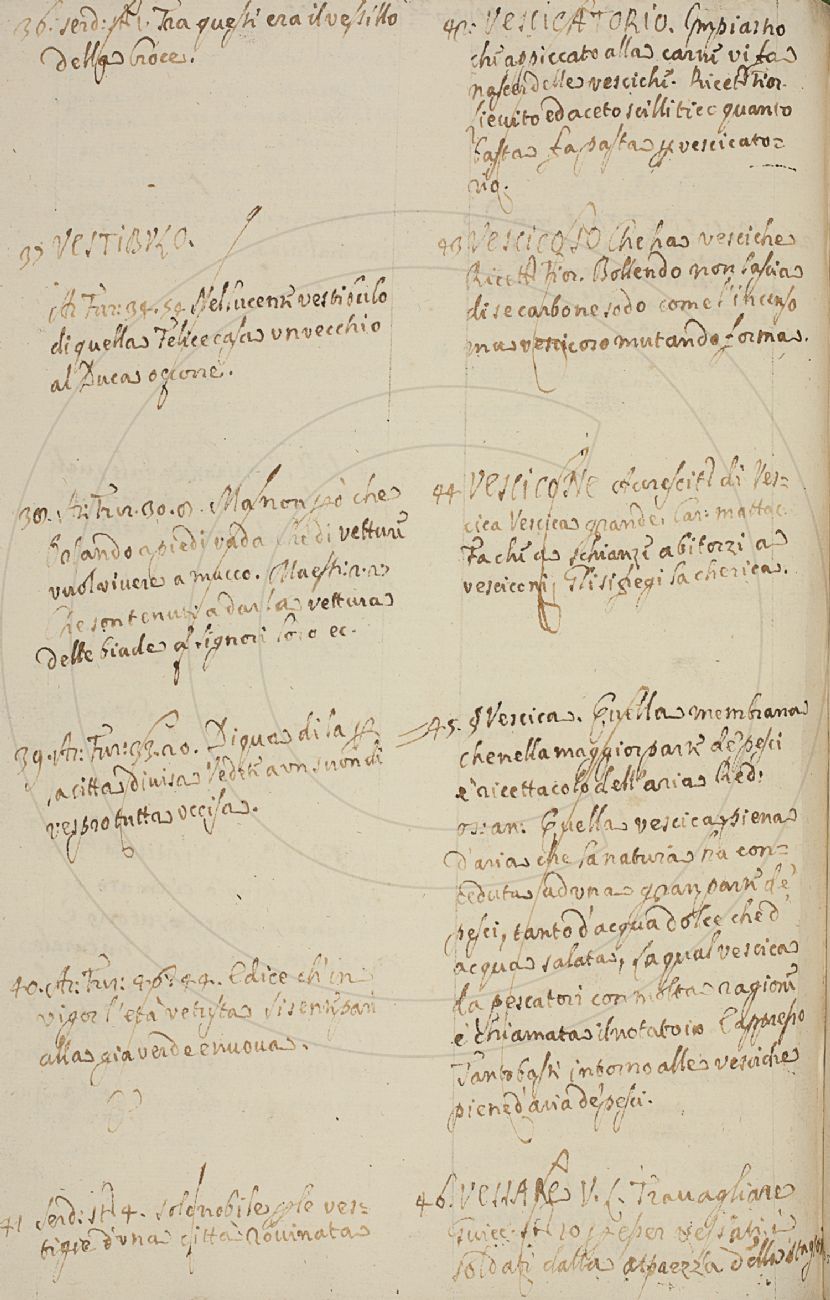 36. serd: st. 1. Tra questi era il vessillo
della Croce.
37 VESTIBULO.
Ar: Fur: 34. 54 Nel lucente vestibulo
di quella Felice casa un vecchio
al Duca occorre.
38. Ar: Fur. 30. 8. Ma non può che
vada che di vetture
vuol vivere a macco. Maestr: 2. 2
Che son tenuti a dar la vettura
delle biade a signori loro ec.
39. Ar: Fur: 33. 20. Di qua di la
la città divisa Vedete a un suon di
vespro tutta uccisa.
40. Ar: Fur: E dice ch'in
vigor l'età
alla già verde e nuova.
41 serd: st. 4. solo nobile ple ves=
tigie d'una città rovinata
42: VESCICATORIO. Empiastro
che appiccato alla carne vi fa
nascer delle vesciche. Ricett. Fior.
lievito ed aceto scillitico quanto
basta fa pasta p vescicato=
rio.
43 VESCICOSO Che ha vesciche
Ricett. Fior. Bollendo non lascia
di se carbone sodo come l'incenso
ma vescicoso mutando forma.
44 VESCICONE Accrescit. di Ves=
cica Vescica grande. Car: mattac.
Fa che a schianze a bitorzi a
vesciconi, Gli si fregi la cherica.
45. § Vescica. Quella membrana
che nella maggior parte de' pesci
è ricettacolo dell'aria Red:
os: an: Quella vescica piena
d'aria che la natura ha con=
ceduta ad una gran parte de'
pesci, tanto d'acqua dolce che d'
acqua salata, la qual vescica
da pescatori con molta ragione
è chiamata il notatoio E appresso
Tanto basti intorno alle vesciche
piene d'aria de' pesci.
46. VESSARE V. L. Travagliare
Guicc: st. 10 p esser vessati i
soldati dalla asprezza della stagion